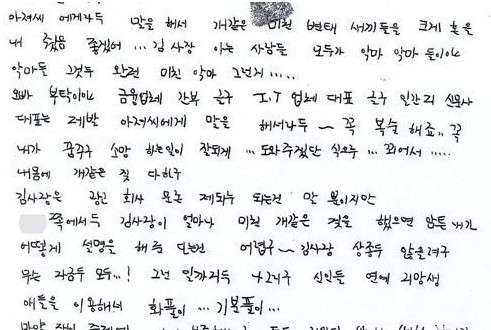 아저씨 에게라두 말을 해서 개같은 미친 변태 새끼들을 크게 혼을
내 줬음 좋겠어 ... 김 사장 아는 사람들 모두가 악마 악마 들이야
악마들 그것두 완전 미친 악마 그런거 .....
오빠 부탁이야 금융업체 간부 하구 I.T 업체 대표 하구 일간지 신문사
대표는 제발 아저씨에게 말을 해서라두 ~ 꼭 복수 해죠.. 꼭
내가 꿈꾸구 소망 하는일이 잘되게 ... 도와주겠단 식으루 ... 꼬여서 .....
내몸에 개같은 짓 다하구
김사장은 광고 회사 문은 제외두 되는건 말 뿐이지만
쪽에서두 김사장이 얼마나 미친 개같은 것을 했으면 암튼 내가
어떻게 설명을 해줄 단는건 어렵구 ~ 김사장 상종두 않을려구
우는 지금두 모두...! 그건 일까지두 신인들 연예 지망생
애들을 이용해서 화풀이 ... 기분풀이 ...